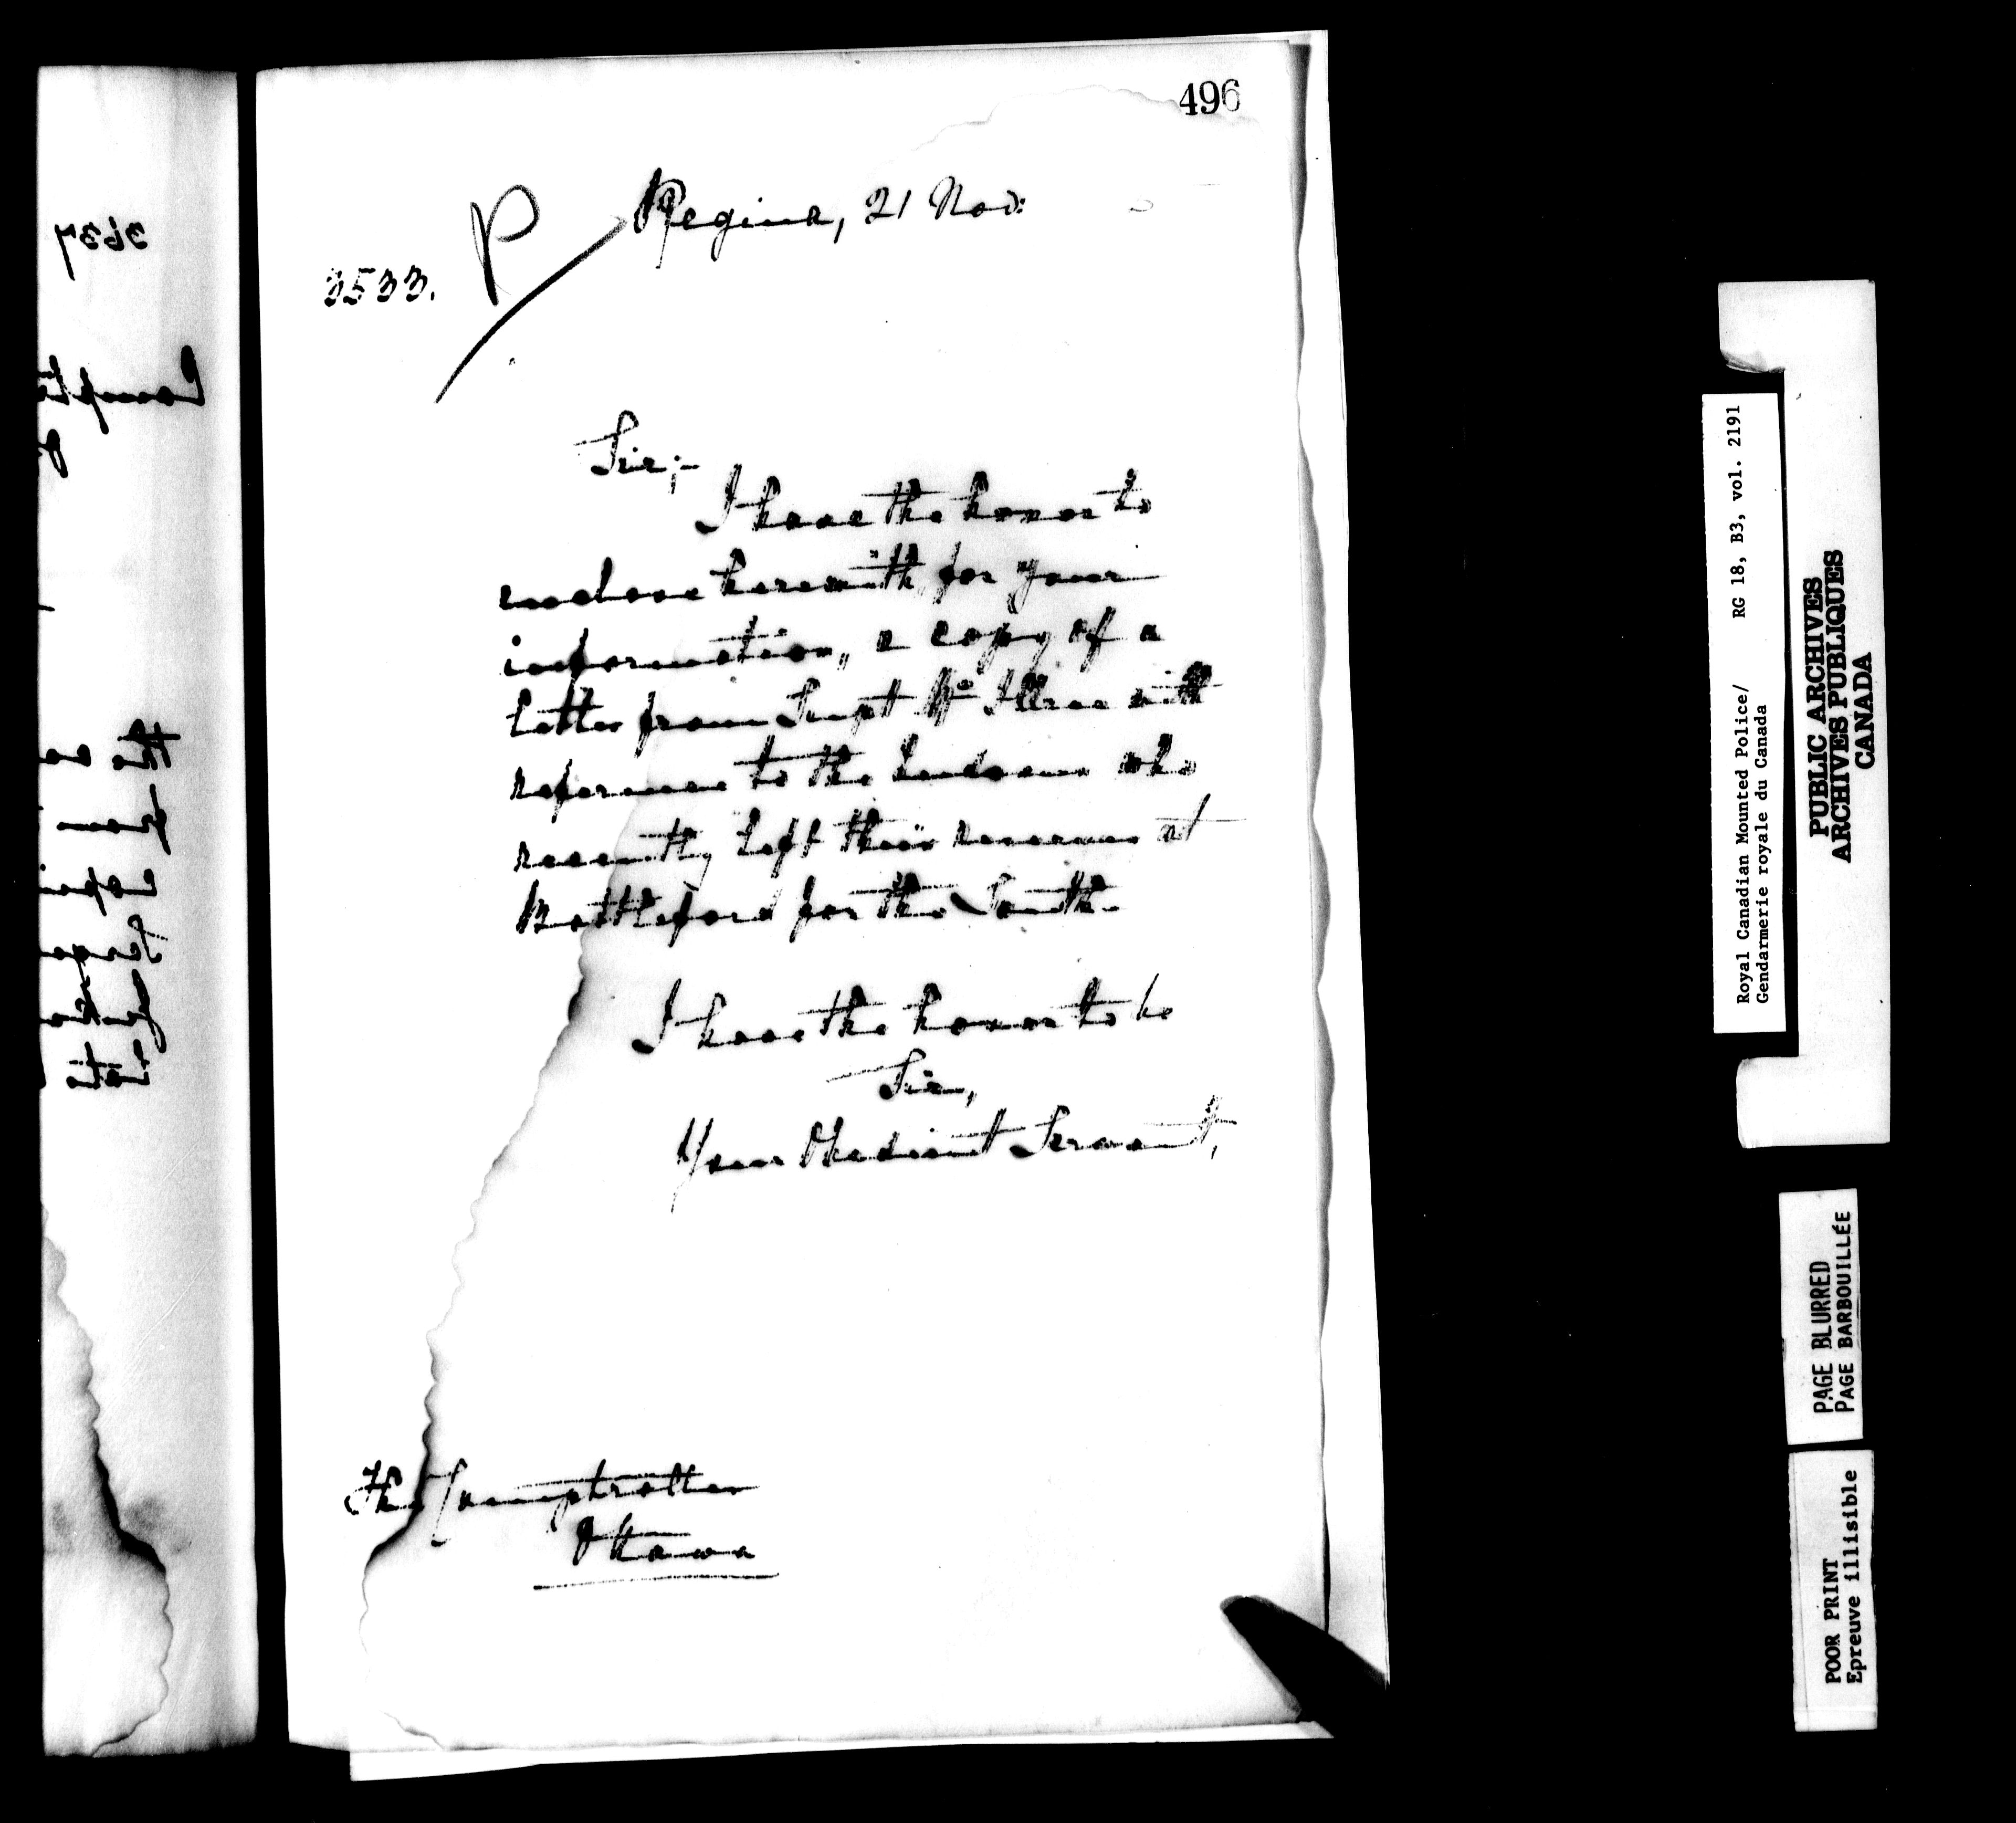 496
Regina, 21 Nov:
P
3533.
Sir;-
I have the honor to
enclose herewith, for your
information, a copy of a
letter from Supt Mc Illree with
reference to the who
recently left their reserves at
Battleford for the South.
I have the honor to be
Sir,
Your Obedient Servant,
The Comptroller
Ottawa
Royal Canadian Mounted Police/ RG 18, B3, vol. 2191
Gendarmerie royale du Canada
PUBLIC ARCHIVES
ARCHIVES PUBLIQUES
CANADA
PAGE BLURRED
PAGE BARBOUILLÉE
POOR PRINT
Epreuve illisible